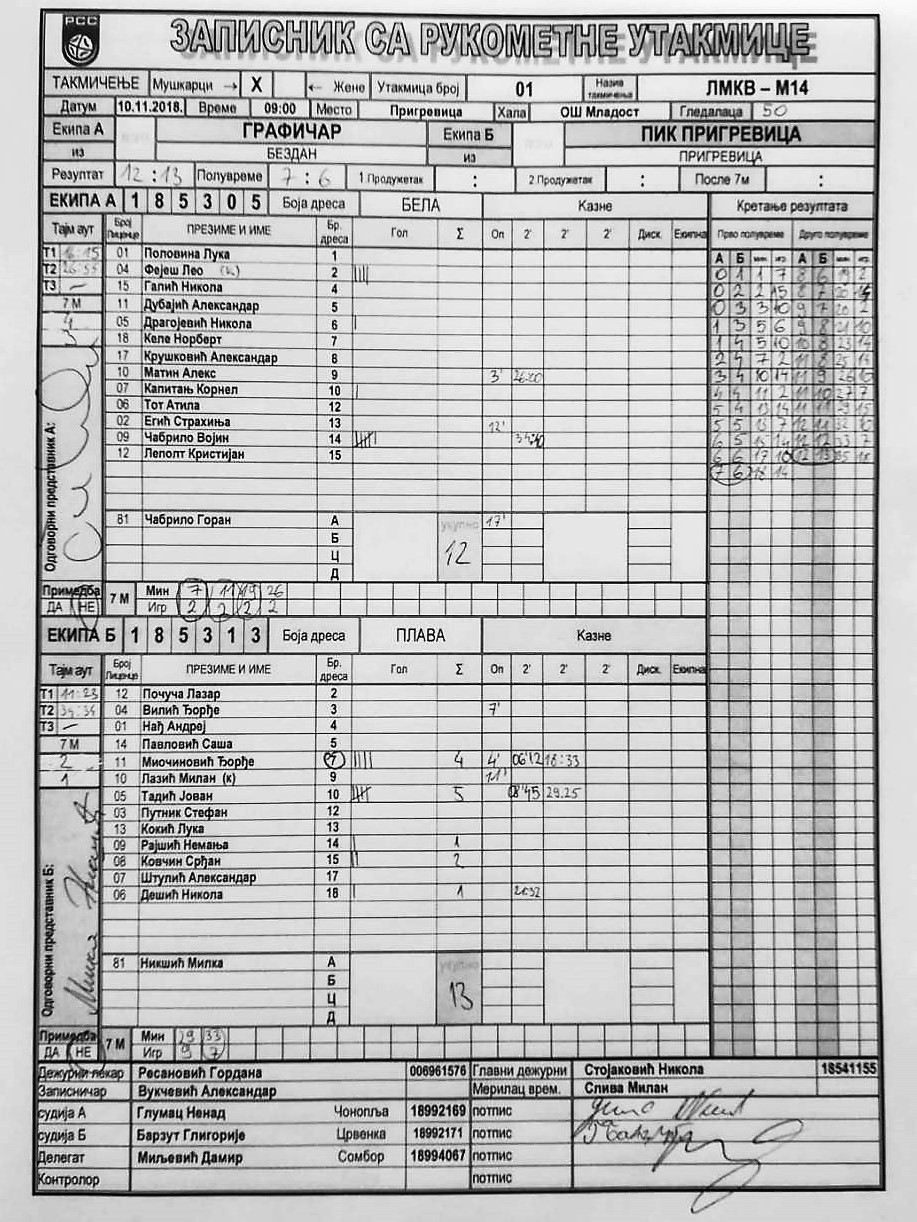 РСС
ЗАПИСНИК СА РУКОМЕТНЕ УТАКМИЦЕ
ТАКМИЧЕЊЕ Мушкарци → X ← Жене Утакмица број 01 Назив такмичења ЛМКВ – М14
Датум 10.11.2018. Време 09:00 Место Пригревица Хала ОШ Младост Гледалаца 50
Екипа А ГРАФИЧАР Екипа Б ПИК ПРИГРЕВИЦА
из БЕЗДАН из ПРИГРЕВИЦА
Резултат 12 : 13 Полувреме 7 : 6 1 Продужетак : 2 Продужетак : После 7м :
ЕКИПА А 1 8 5 3 0 5 Боја дреса БЕЛА Казне Кретање резултата
Тајм аут Број Лиценце ПРЕЗИМЕ И ИМЕ Бр. дреса Гол Σ Оп 2' 2' 2' Диск. Екипна Прво полувреме Друго полувреме
А Б мин игр. А Б мин игр.
Т1 01 Половина Лука 1
Т2 04 Фејеш Лео (к) 2
Т3 – 15 Галић Никола 4
7 М 11 Дубајић Александар 5
4 05 Драгојевић Никола 6
18 Келе Норберт 7
17 Крушковић Александар 8
10 Матин Алекс 9 3' 26:20
07 Капитањ Корнел 10
06 Тот Атила 12
02 Егић Страхиња 13 12'
09 Чабрило Војин 14
12 Леполт Кристијан 15
0 1 1 7 8 6 19 2
0 2 2 15 8 7 20
0 3 3 10 9 7 20 2
1 3 5 6 9 8 21 10
1 4 5 10 10 8 23 14
2 4 7 2 11 8 25 14
3 4 10 14 11 9 26 10
4 4 11 2 11 10 27 7
5 4 13 14 11 11 29 15
5 5 13 7 12 11 32 10
6 5 15 14 12 12 33 7
6 6 17 10 12 13 35 18
7 6 18 14
81 Чабрило Горан А 17'
Б
Ц
Д
укупно 12
Одговорни представник А:
Примедба ДА НЕ
7 М Мин 7 11 19 26
Игр 2 2 2 2
ЕКИПА Б 1 8 5 3 1 3 Боја дреса ПЛАВА Казне
Тајм аут Број Лиценце ПРЕЗИМЕ И ИМЕ Бр. дреса Гол Σ Оп 2' 2' 2' Диск. Екипна
Т1 11:23 12 Почуча Лазар 2
Т2 34:34 04 Вилић Ђорђе 3 7'
Т3 – 01 Нађ Андреј 4
7 М 14 Павловић Саша 5
2 11 Миочиновић Ђорђе 7 4 4' 06'12 18:33
1 10 Лазић Милан (к) 9 11'
05 Тадић Јован 10 5 08'45 29.25
03 Путник Стефан 12
13 Кокић Лука 13
09 Рајшић Немања 14 1
08 Ковчин Срђан 15 2
07 Штулић Александар 17
06 Дешић Никола 18 1
81 Никшић Милка А
Б
Ц
Д
укупно 13
Одговорни представник Б:
Милка Никшић
Примедба ДА НЕ
7 М Мин 29 33
Игр 9 7
Дежурни лекар Ресановић Гордана 006961576 Главни дежурни Стојаковић Никола 18541155
Записничар Вукчевић Александар Мерилац врем. Слива Милан
судија А Глумац Ненад Чонопља 18992169 потпис
судија Б Барзут Глигорије Црвенка 18992171 потпис
Делегат Миљевић Дамир Сомбор 18994067 потпис
Контролор потпис